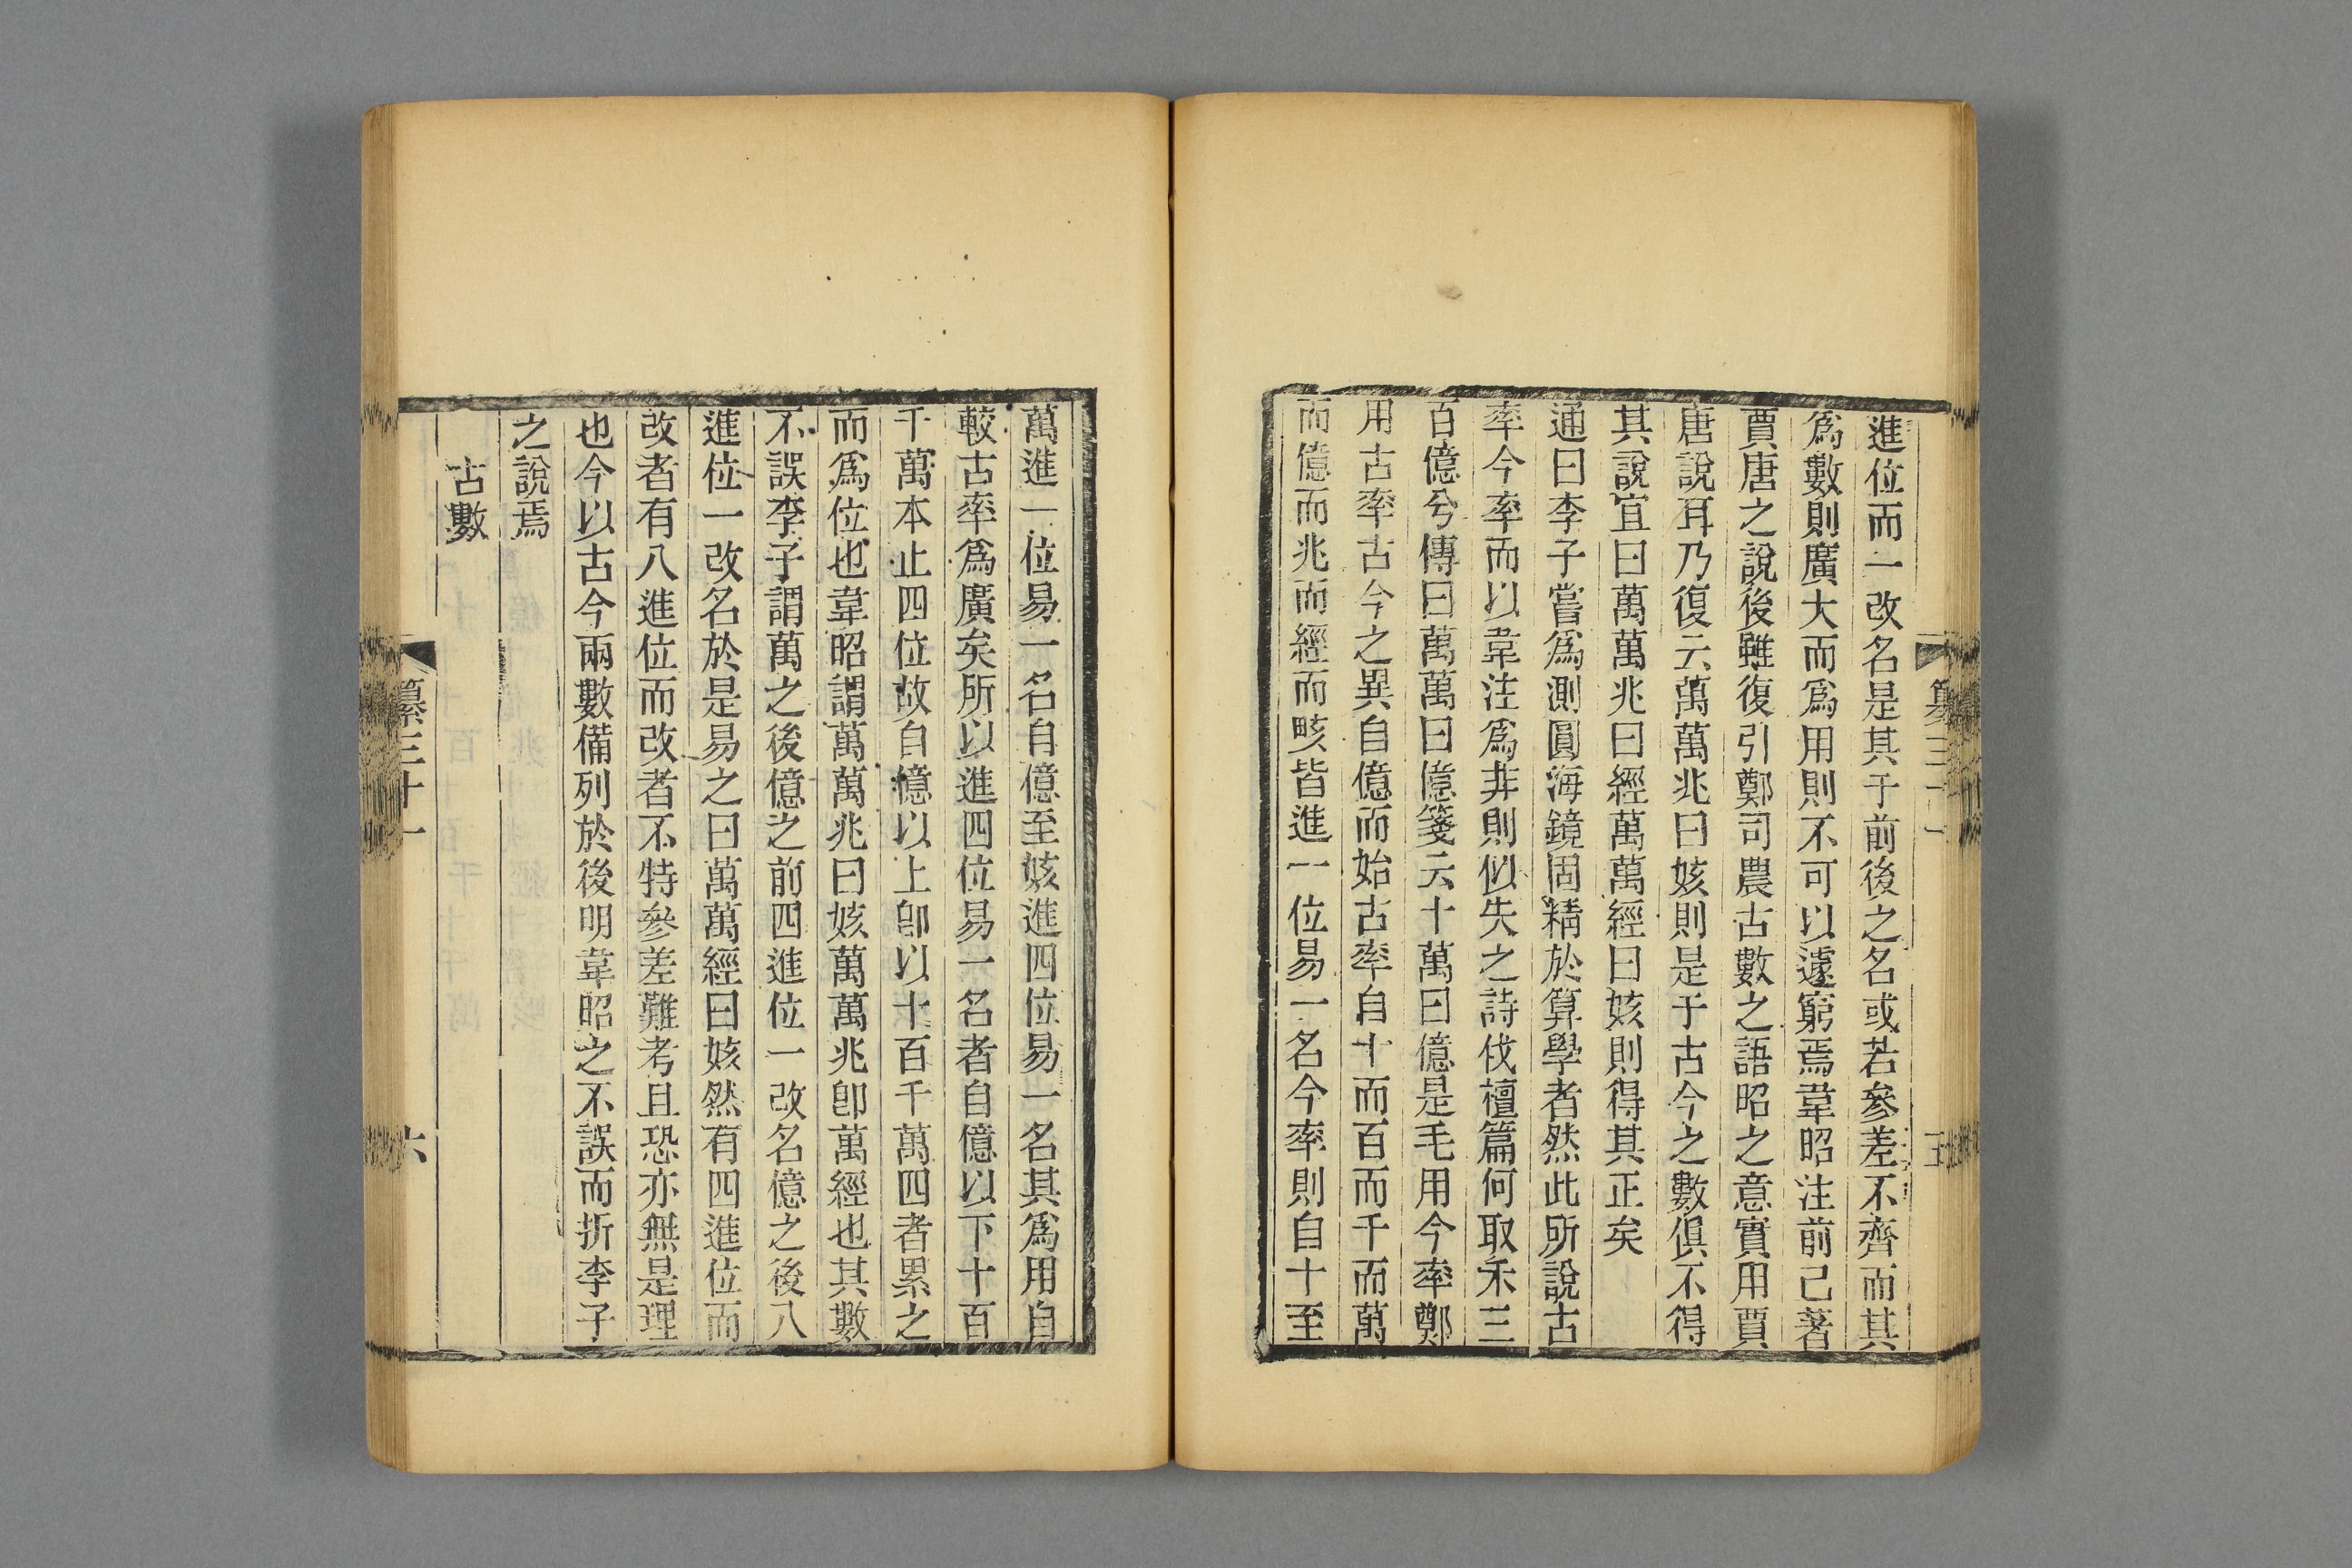 進位而一改名是其于前後之名或若參差不齊而其
爲數則廣大而爲用則不可以遽窮焉韋昭注前已著
賈唐之說後雖復引鄭司農古數之語昭之意實用賈
唐說耳乃復云萬萬兆曰姟則是于古今之數俱不得
其說宜曰萬萬兆曰經萬萬經曰姟則得其正矣
通曰李子嘗爲測圓海鏡固精於算學者然此所說古
率今率而以韋注爲非則似失之詩伐檀篇何取禾三
百億兮傳曰萬萬曰億箋云十萬曰億是毛用今率鄭
用古率古今之異自億而始古率自十而百而千而萬
而億而兆而經而畡皆進一位易一名今率則自十至
纂三十一
五
萬進一位易一名自億至姟進四位易一名其爲用自
較古率爲廣矣所以進四位易一名者自億以下十百
千萬本止四位故自億以上卽以十百千萬四者累之
而爲位也韋昭謂萬萬兆曰姟萬萬兆卽萬經也其數
不誤李子謂萬之後億之前四進位一改名億之後八
進位一改名於是易之曰萬萬經曰姟然有四進位而
改者有八進位而改者不特參差難考且恐亦無是理
也今以古今兩數備列於後明韋昭之不誤而折李子
之說焉
古數
纂三十一
六